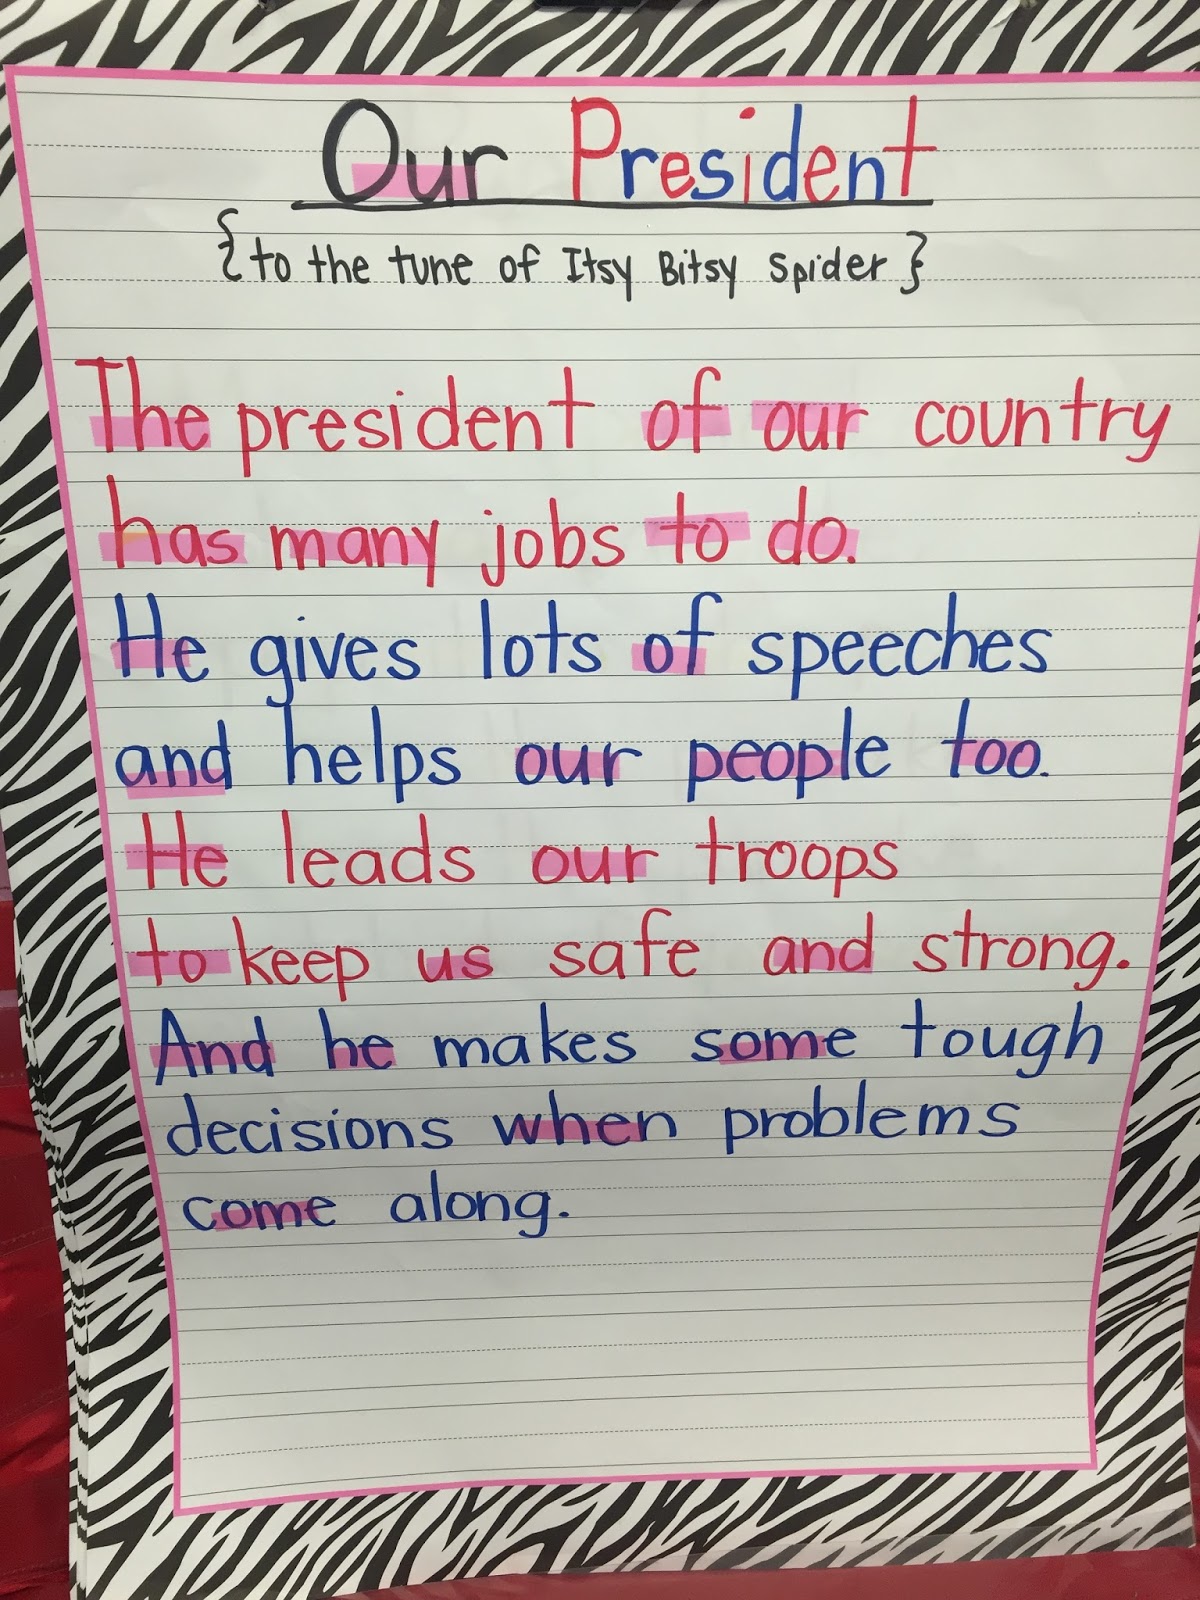 Our President
{to the tune of Itsy Bitsy Spider}
The president of our country
has many jobs to do.
He gives lots of speeches
and helps our people too.
He leads our troops
to keep us safe and strong.
And he makes some tough
decisions when problems
come along.